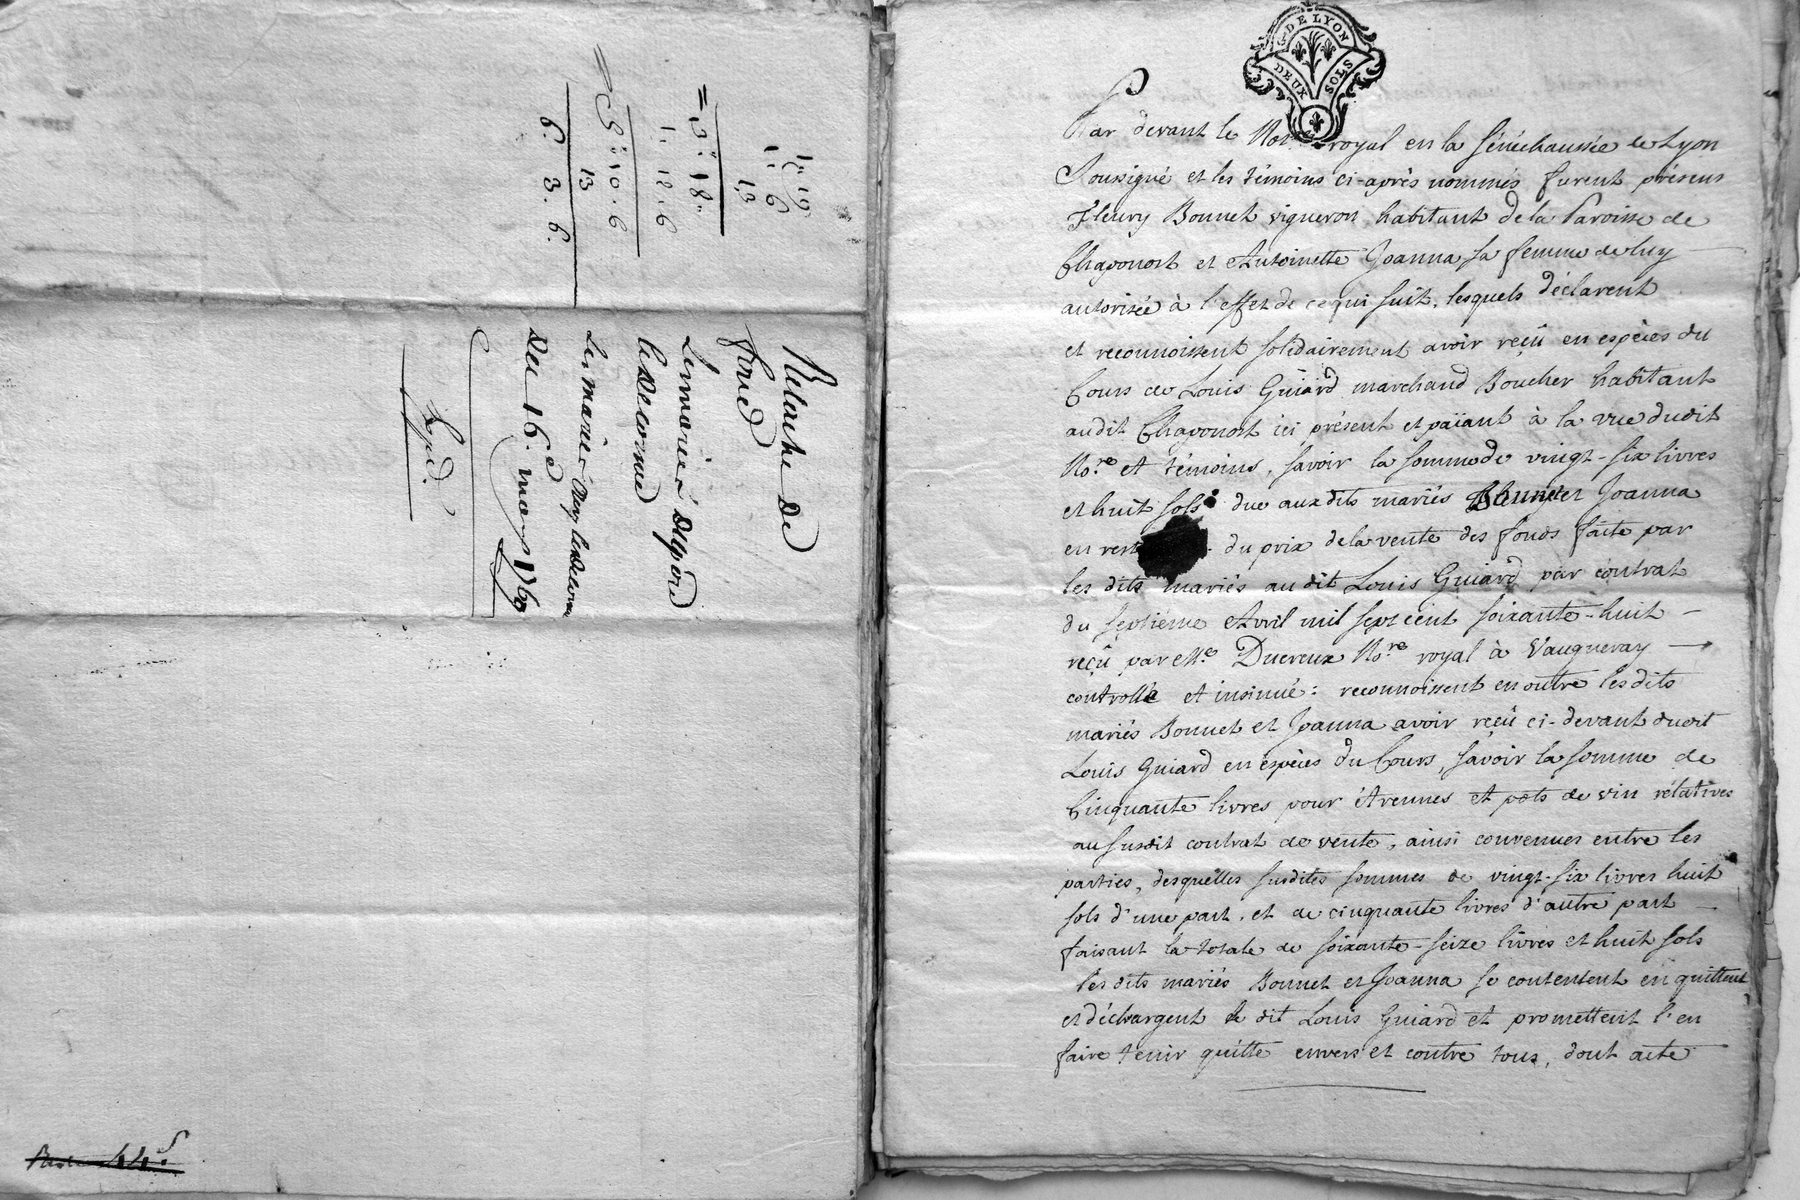 1. 6
13
1. 12. 6
13
6. 3. 6.
Relache de
fond
Du 16e mars 1760
G. DE LYON
DEUX SOLS
Par devant le Nore. royal en la sénéchaussée de Lyon
Soussigné et les témoins ci-après nommés furent présens
Fleury Bonnet vigneron habitant de la Paroisse de
Chaponost et Antoinette Joanna sa femme de luy
autorisée à l'effet de ce qui suit, lesquels déclarent
et reconnoissent solidairement avoir reçû en espèces du
Cours de Louis Guiard marchand Boucher habitant
audit Chaponost ici présent et païant à la vue dudit
No.re et témoins, savoir la somme de vingt-six livres
et huit sols due aux dits mariés Bonnet Joanna
en rest du prix de la vente des fonds faite par
les dits mariés au dit Louis Guiard par contrat
du septième Avril mil sept cent soixante-huit -
reçû par Me. Ducreux No.re royal à Vaugneray -
controllé et insinué: reconnoissent en outre les dits
mariés Bonnet et Joanna avoir reçû ci-devant dudit
Louis Guiard en espèces du Cours, savoir la somme de
Cinquante livres pour étrennes et pots de vin rélatives
au susdit contrat de vente, ainsi convenues entre les
parties, desquelles susdites sommes de vingt-six livres huit
sols d'une part, et de cinquante livres d'autre part -
faisant la totale de soixante-seize livres et huit sols
les dits mariés Bonnet et Joanna se contentent en quittent
et déchargent le dit Louis Guiard et promettent l'en
faire tenir quitte envers et contre tous, dont acte